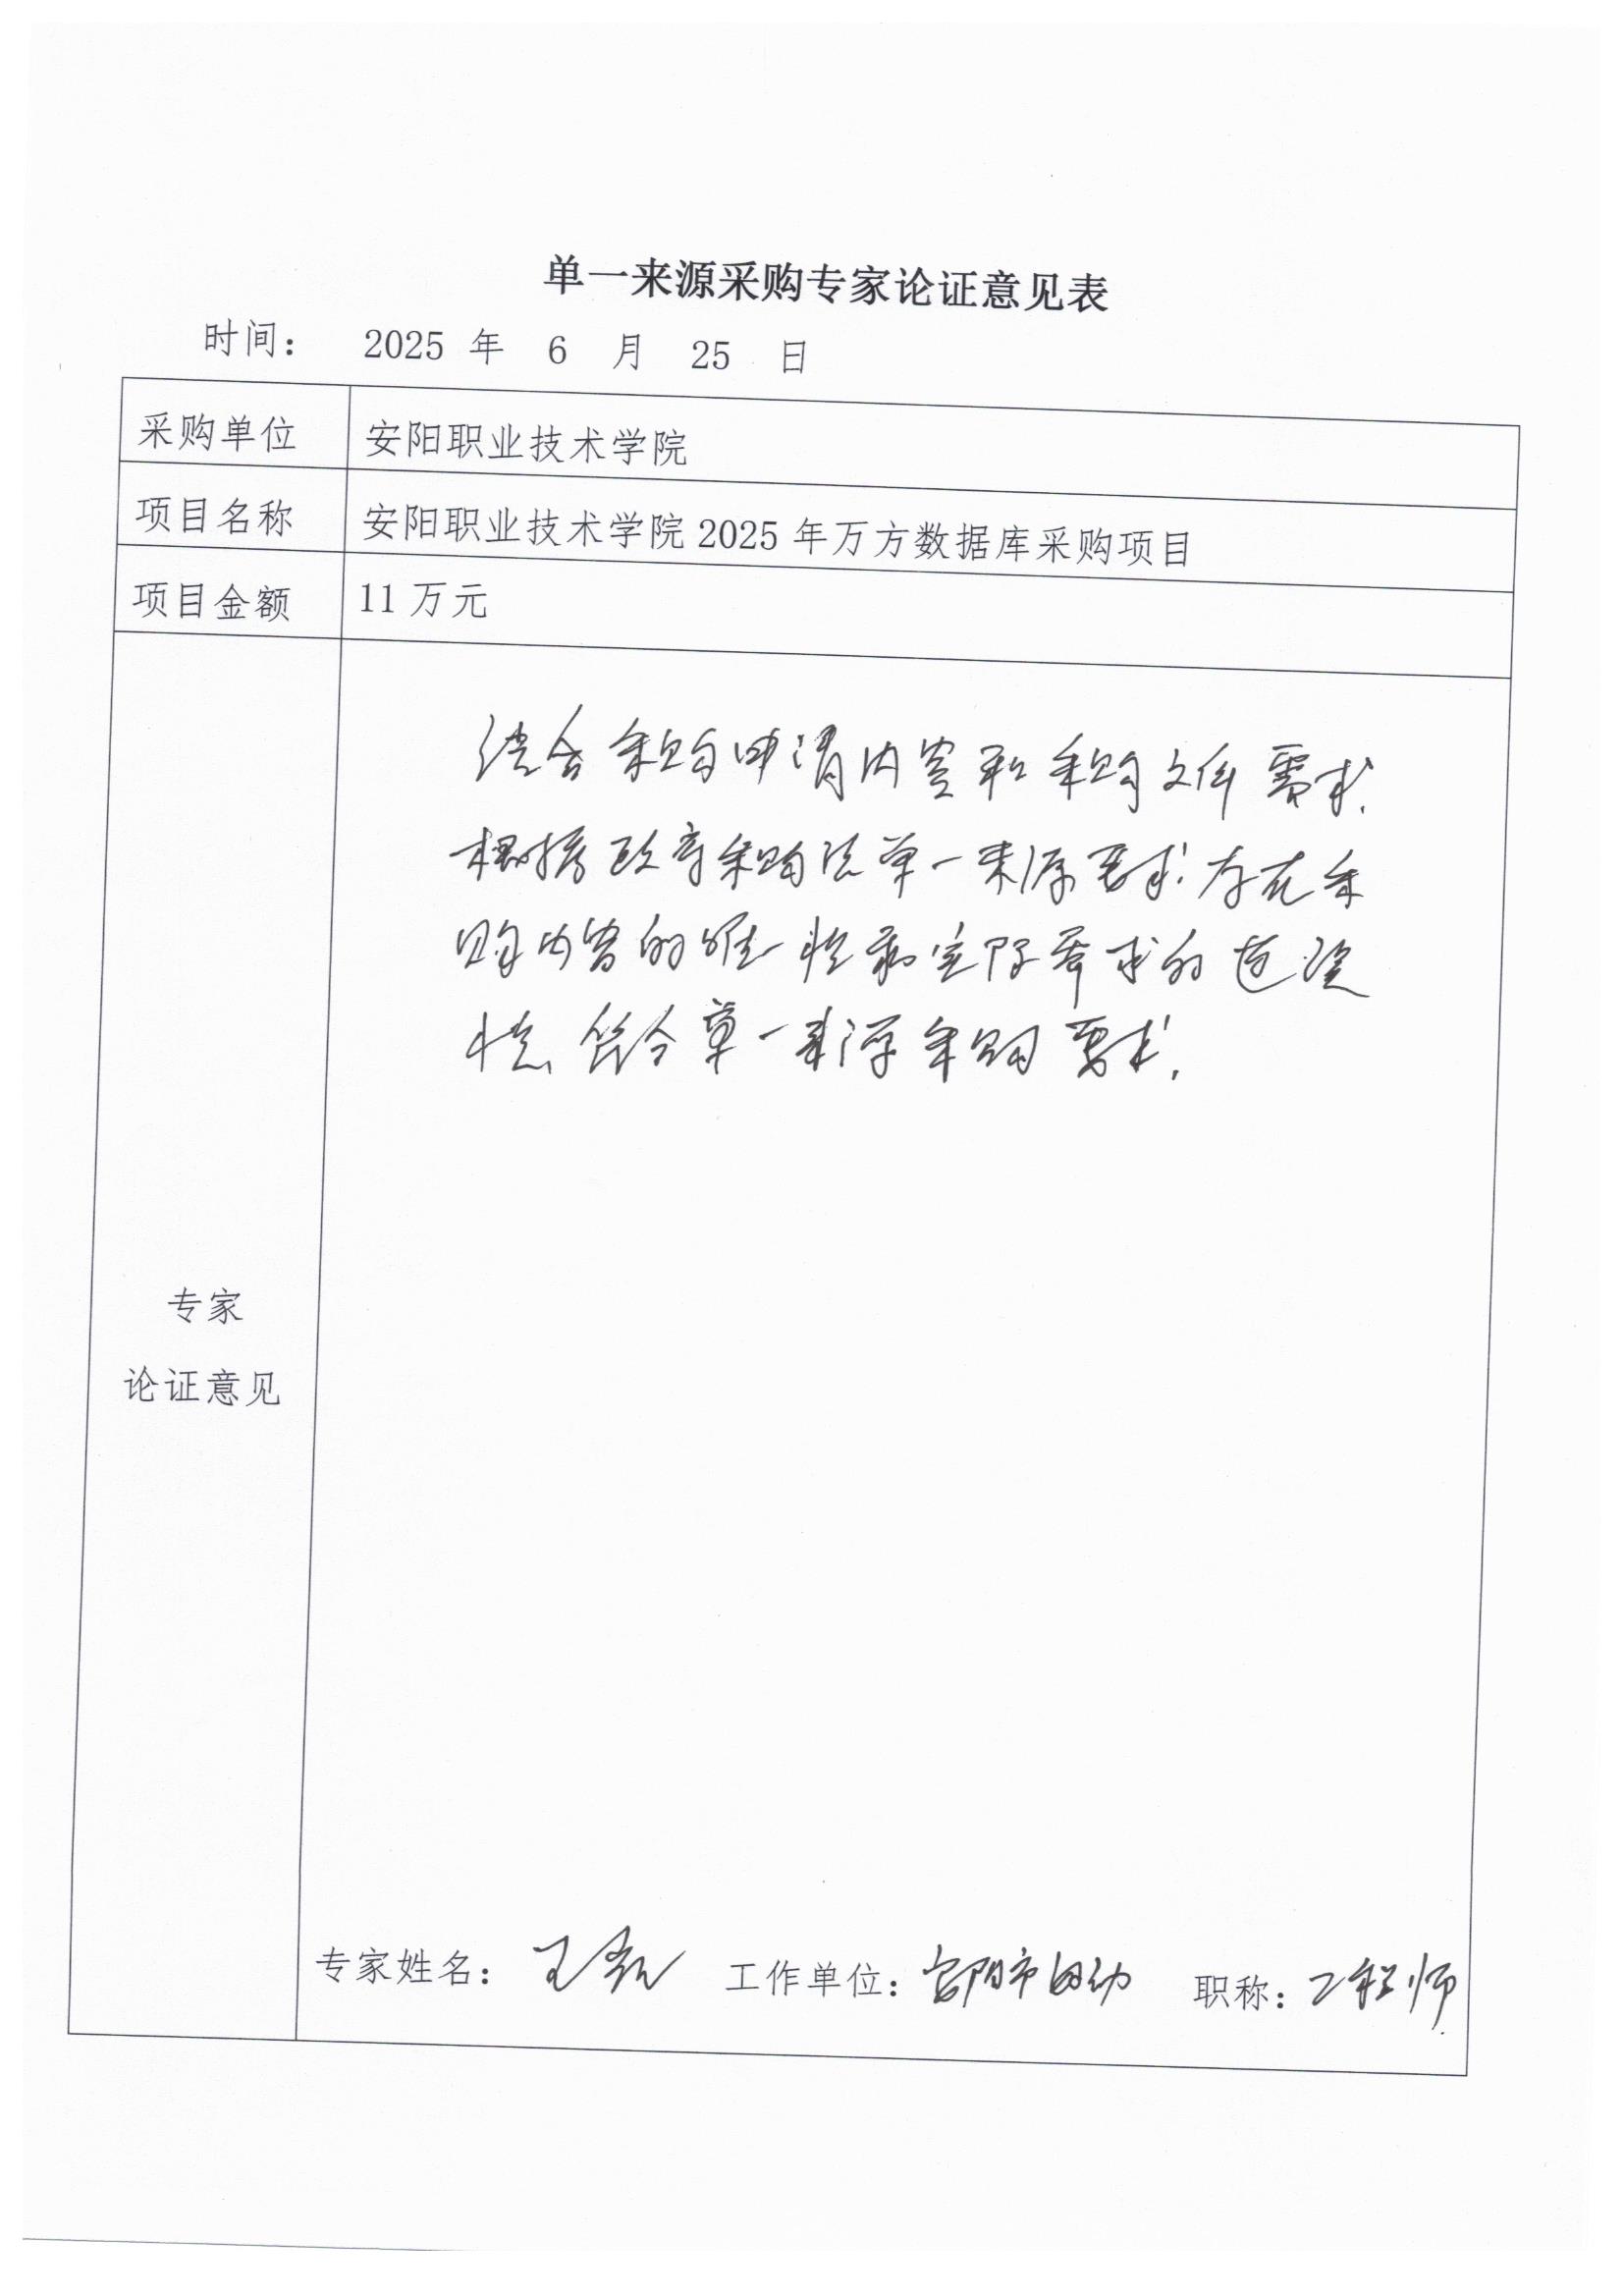 单一来源采购专家论证意见表
时间： 2025 年 6 月 25 日
采购单位 安阳职业技术学院
项目名称 安阳职业技术学院 2025 年万方数据库采购项目
项目金额 11 万元
结合采购申请内容和采购文件需求.
根据政府采购法单一来源要求.存在采
购内容的唯一性和实际需求的
性、符合单一来源采购要求.
专家
论证意见
专家姓名：王 工作单位：安阳市 职称：工程师